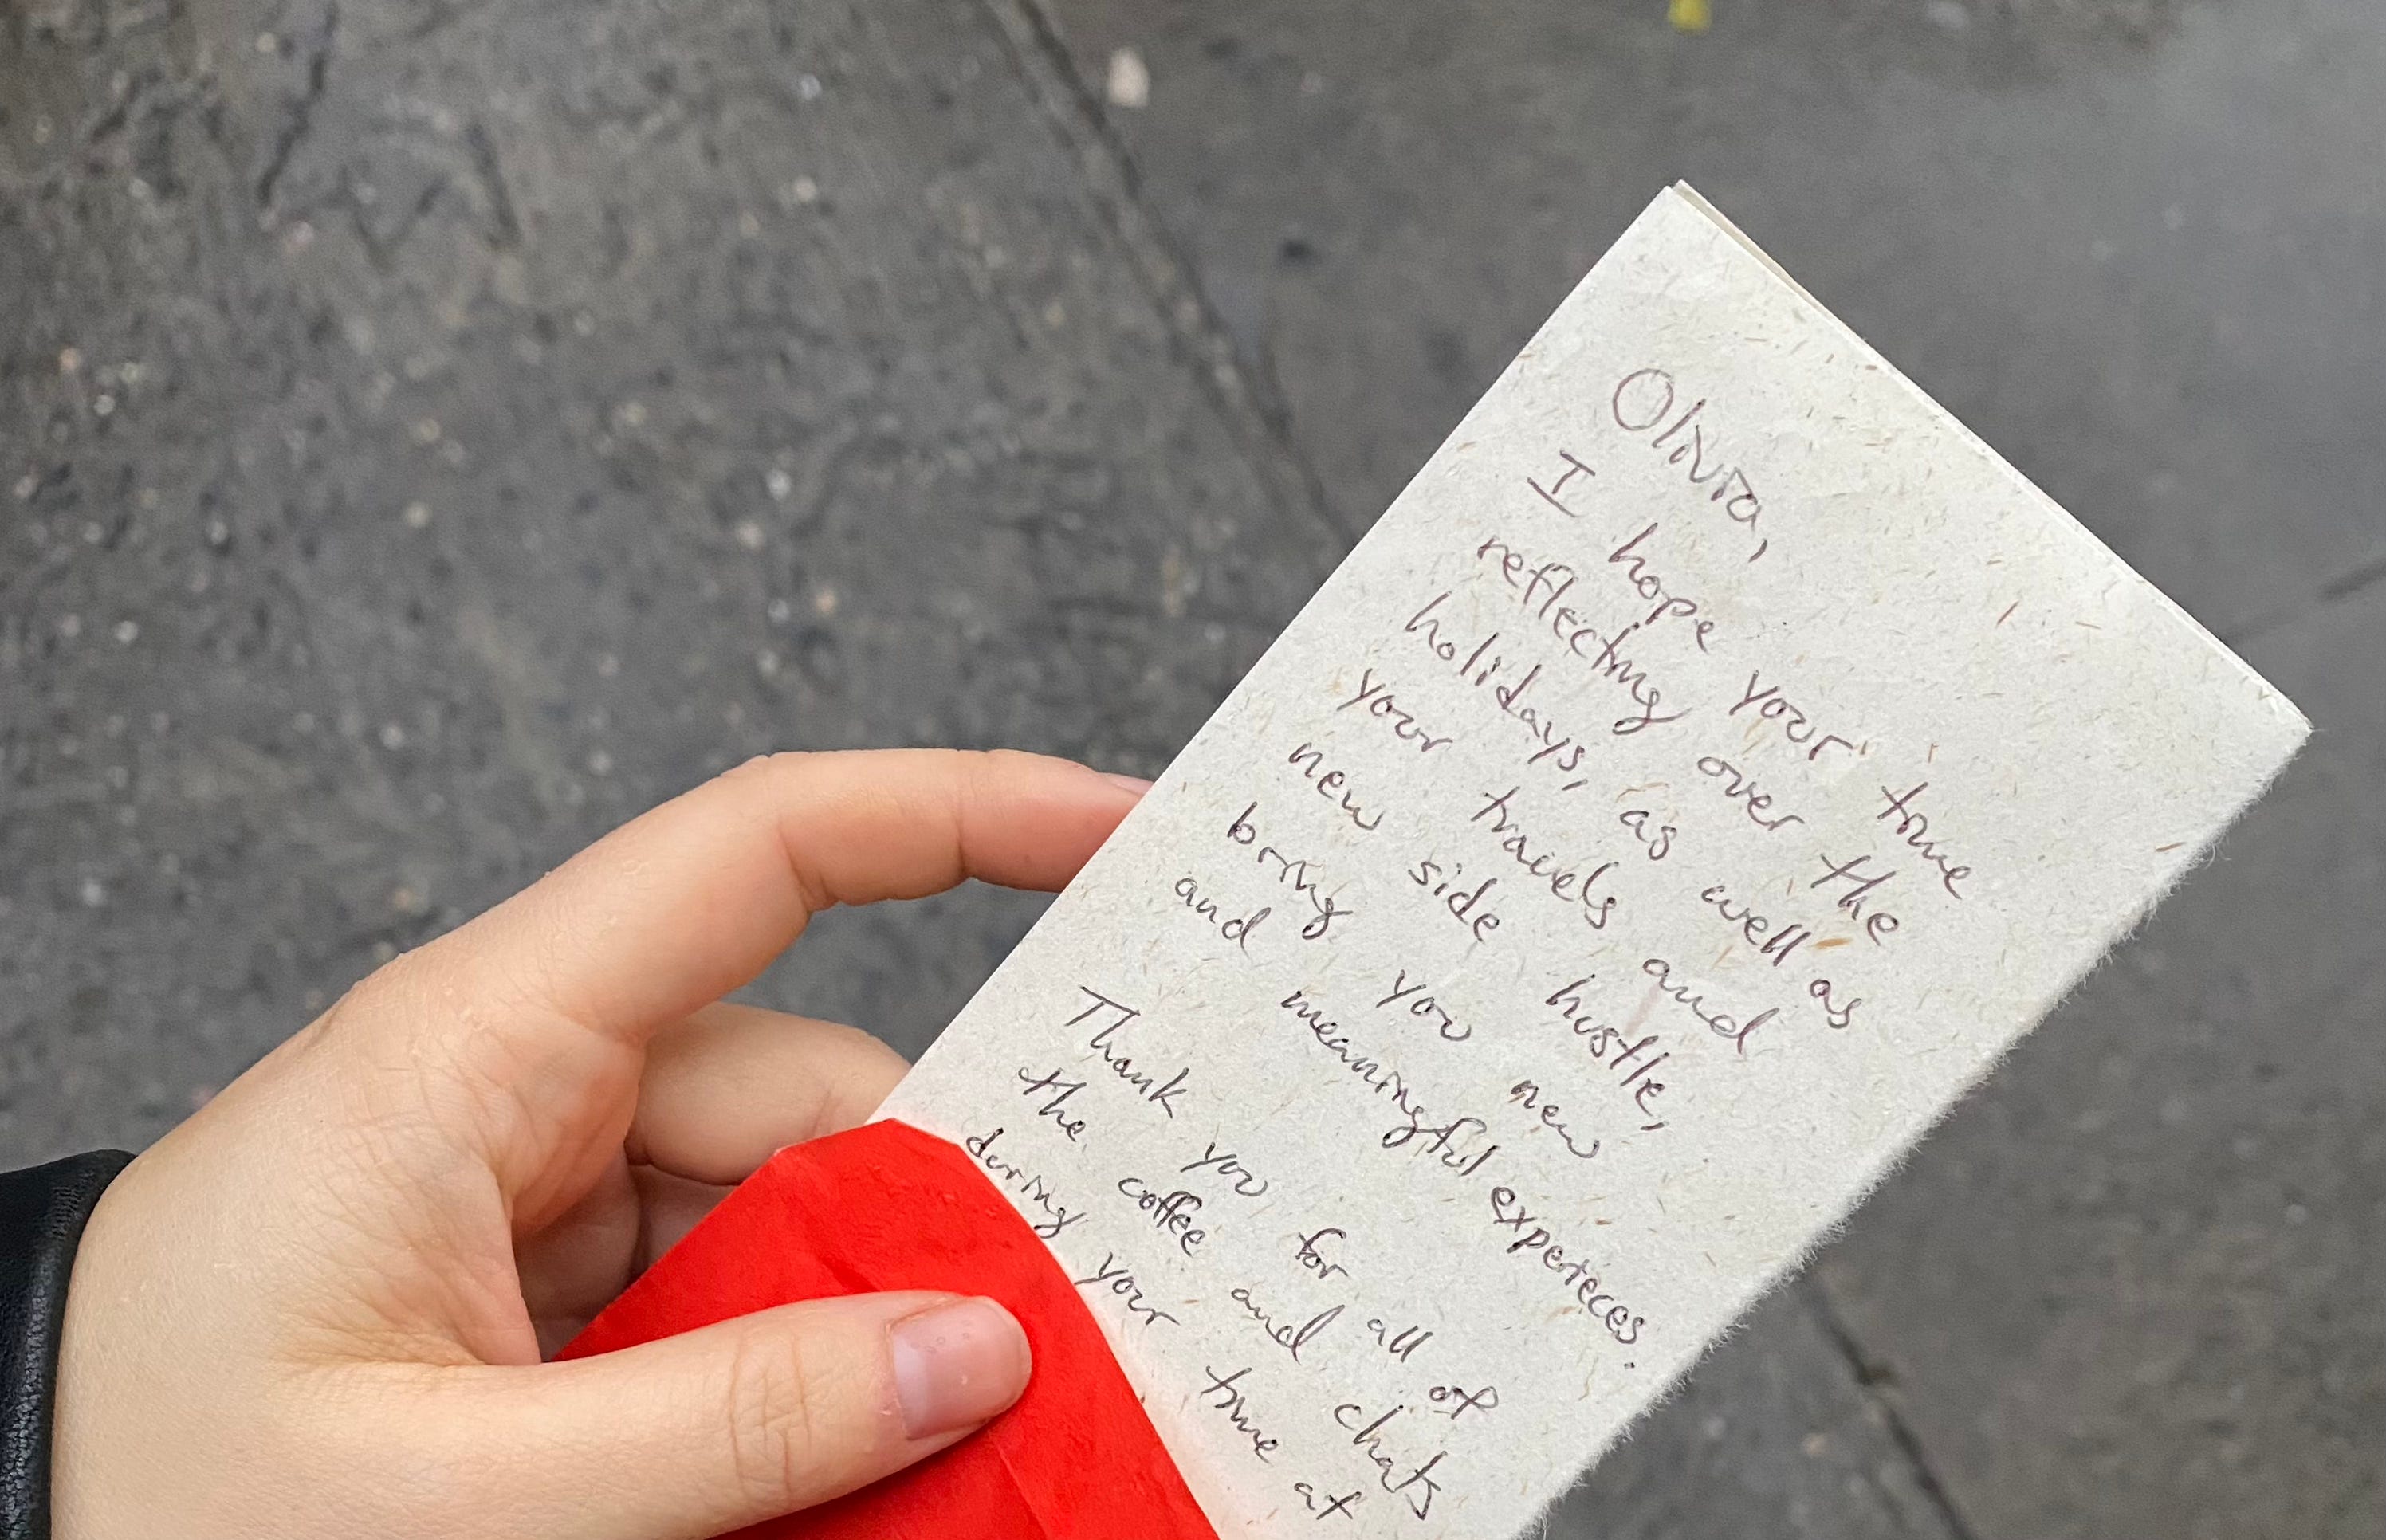 Olivia,
I hope your time
reflecting over the
holidays, as well as
your travels and
new side hustle,
bring you new
and meaningful experieces.
Thank you for all of
the coffee and chats
during your time at